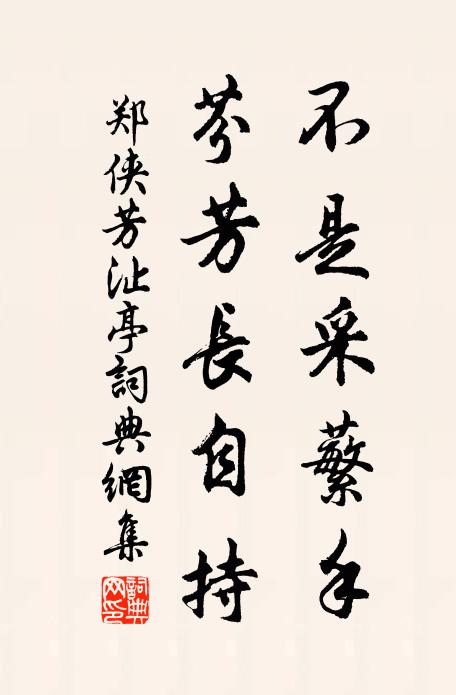 不是采蘩手
芬芳長自持
郑侠芳沚亭詞典網集
詞典网印